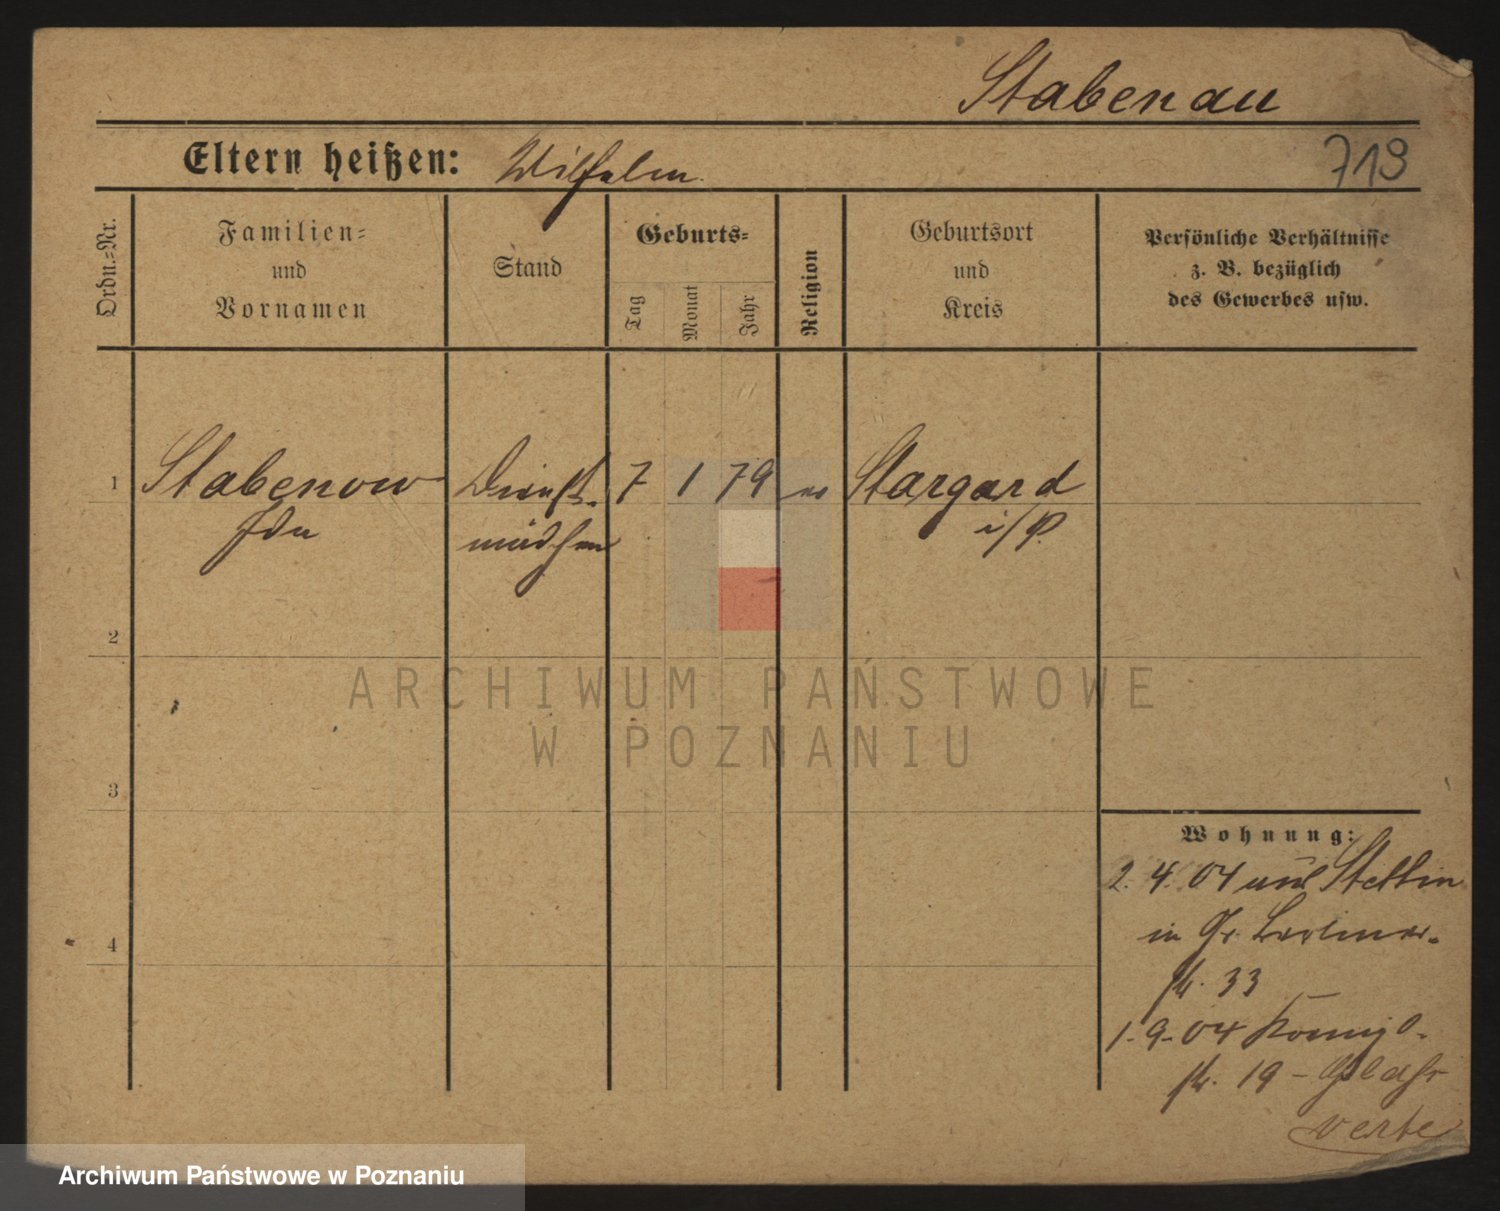 Stabenau
Eltern heißen: Wilhelm
713
Ordn.-Nr.
Familien-
und
Vornamen
Stand
Geburts-
Tag
Monat
Jahr
Religion
Geburtsort
und
Kreis
Persönliche Verhältnisse
z. B. bezüglich
des Gewerbes usw.
1 Stabenow Dienst- 7 1 79 ev Stargard
Ida mädchen i/P.
2
3
4
Wohnung:
2. 4. 04 aus Stettin
in Gr. Berliner-
str. 33
1. 9. 04 Königs-
str. 19 -
verte
ARCHIWUM PAŃSTWOWE
W POZNANIU
Archiwum Państwowe w Poznaniu